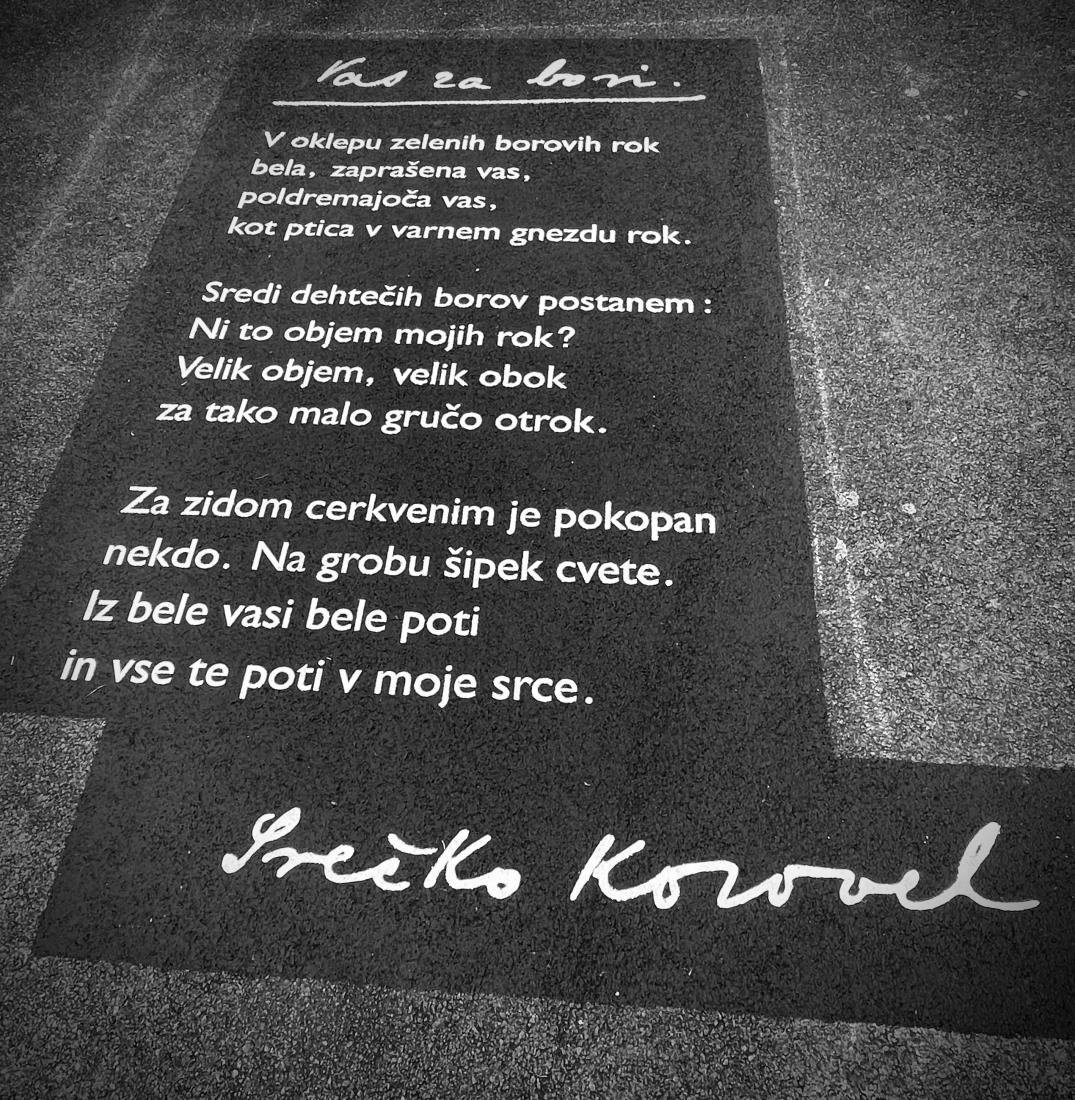 Vas za bori.
V oklepu zelenih borovih rok
bela, zaprašena vas,
poldremajoča vas,
kot ptica v varnem gnezdu rok.
Sredi dehtečih borov postanem :
Ni to objem mojih rok?
Velik objem, velik obok
za tako malo gručo otrok.
Za zidom cerkvenim je pokopan
nekdo. Na grobu šipek cvete.
Iz bele vasi bele poti
in vse te poti v moje srce.
Srečko Kosovel